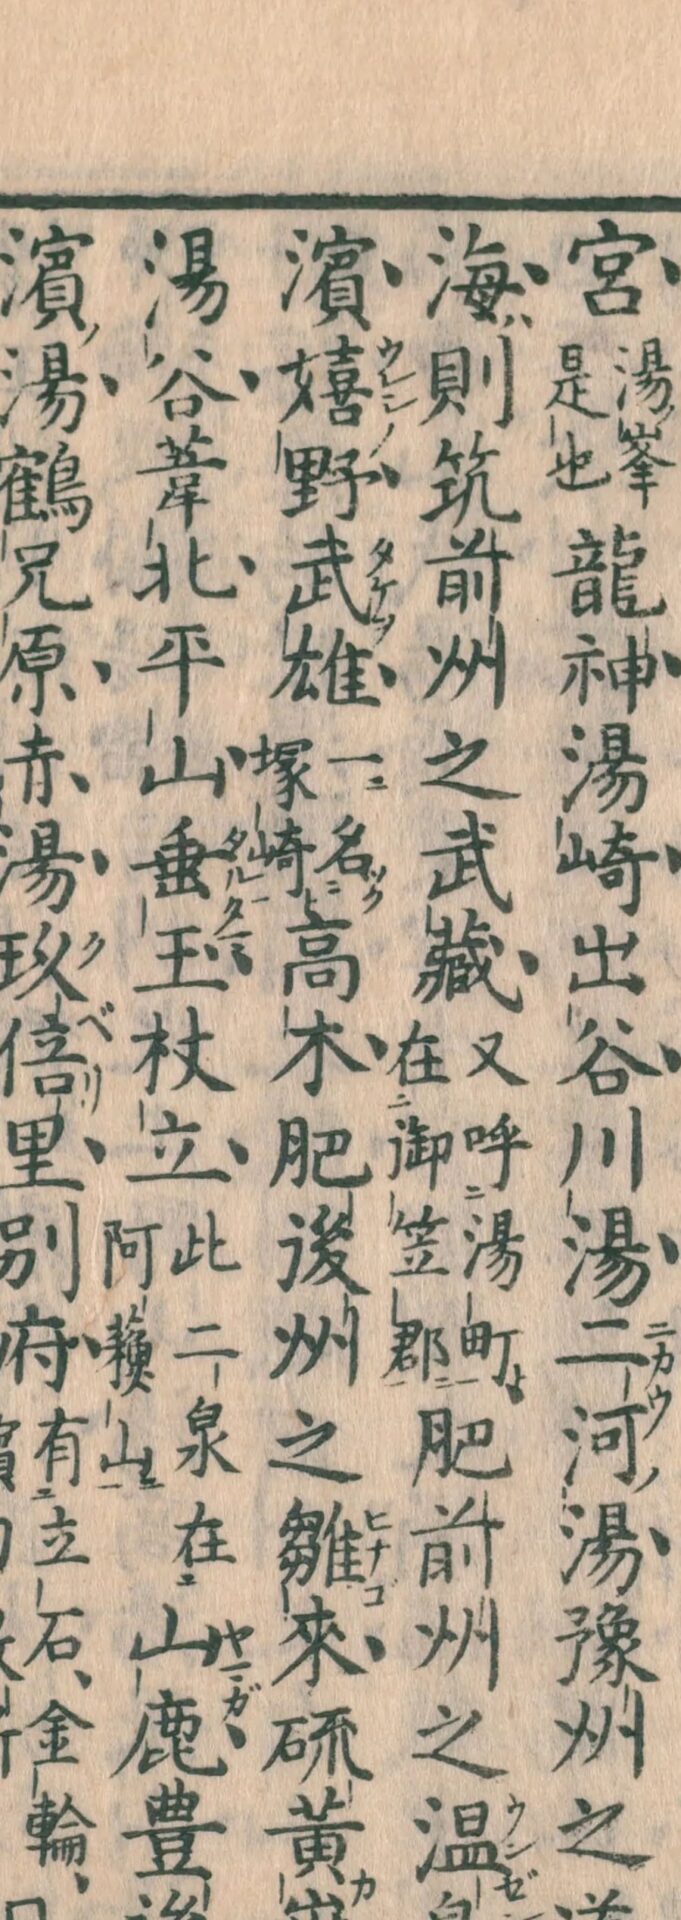 宮湯峯是也龍神湯崎出谷川湯二河湯豫州之
海則筑前州之武藏又呼湯町在御笠郡肥前州之温
濱嬉野武雄一名塚崎高木肥後州之雛來硫黃
湯谷葦北平山垂玉杖立此二泉在阿蘓山山鹿豊
濱湯鶴兄原赤湯玖倍里別府有立石金輪